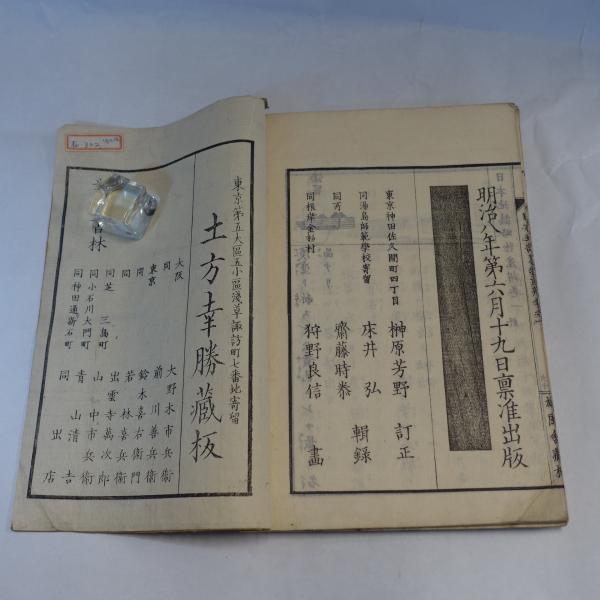 明治八年第六月十九日稟准出版
東京神田佐久間町四丁目
榊原芳野 訂正
同湯島師範學校寄留
床井弘 輯録
同所
齋藤時泰
同根岸金杉村
狩野良信 畫
東京第五大區五小區淺草諏訪町七番地寄留
土方幸勝藏板
大阪 大野木市兵衛
同 前川善兵衛
東京 鈴木喜右衛門
同 若林喜兵衛
同芝三島町 出雲寺萬次郎
同小石川大門町 山中市兵衛
同神田通新石町 青山清吉
同出店
林